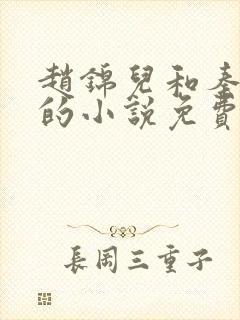 趙錦兒和秦
的小說免費
長岡三重子